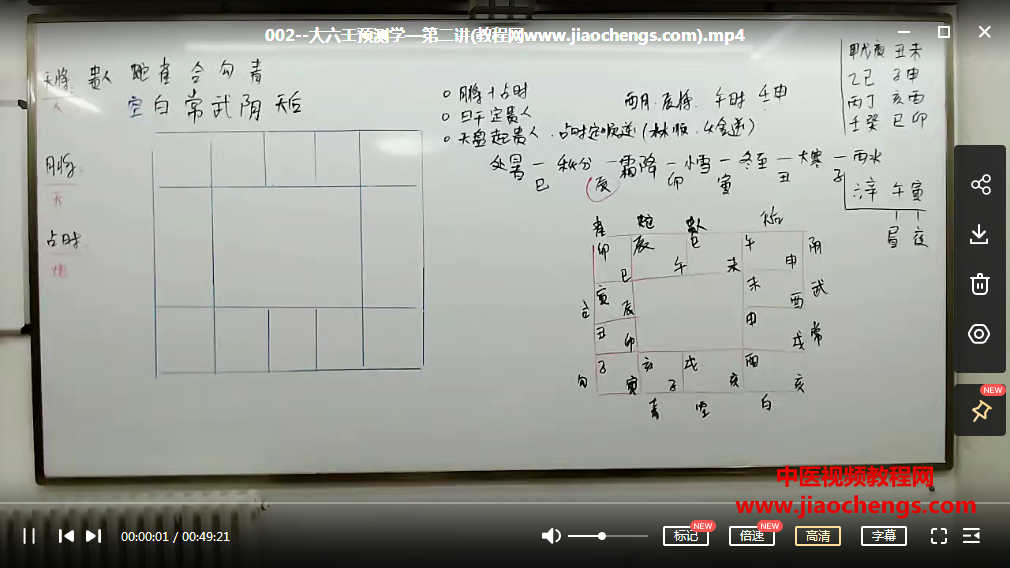 002--大六壬预测学—第二讲(教程网www.jiaochengs.com).mp4
天将: 贵人 蛇 雀 合 勾 青
人 空 白 常 武 阴 天后
月将:
天
占时
地
○ 月将+占时
○ 日干定贵人
○ 天盘起贵人.占时定顺逆
酉月.辰将. 午时 壬申
处暑一秋分一霜降一小雪一冬至一大寒一雨水
巳 辰 卯 寅 丑 子
甲戊庚 丑未
乙己 子申
丙丁 亥酉
壬癸 巳卯
六辛 午寅
雀 蛇 贵人 天后
卯 辰 巳 午 阴
巳 午 未 申
寅 辰 未 酉 武
合
丑 卯 申 戌 常
子 亥 戌 酉
勾 寅 子 亥 亥
青 空 白
中医视频教程网
www.jiaochengs.com
00:00:01 / 00:49:21
标记 NEW
倍速 NEW
高清
字幕
NEW